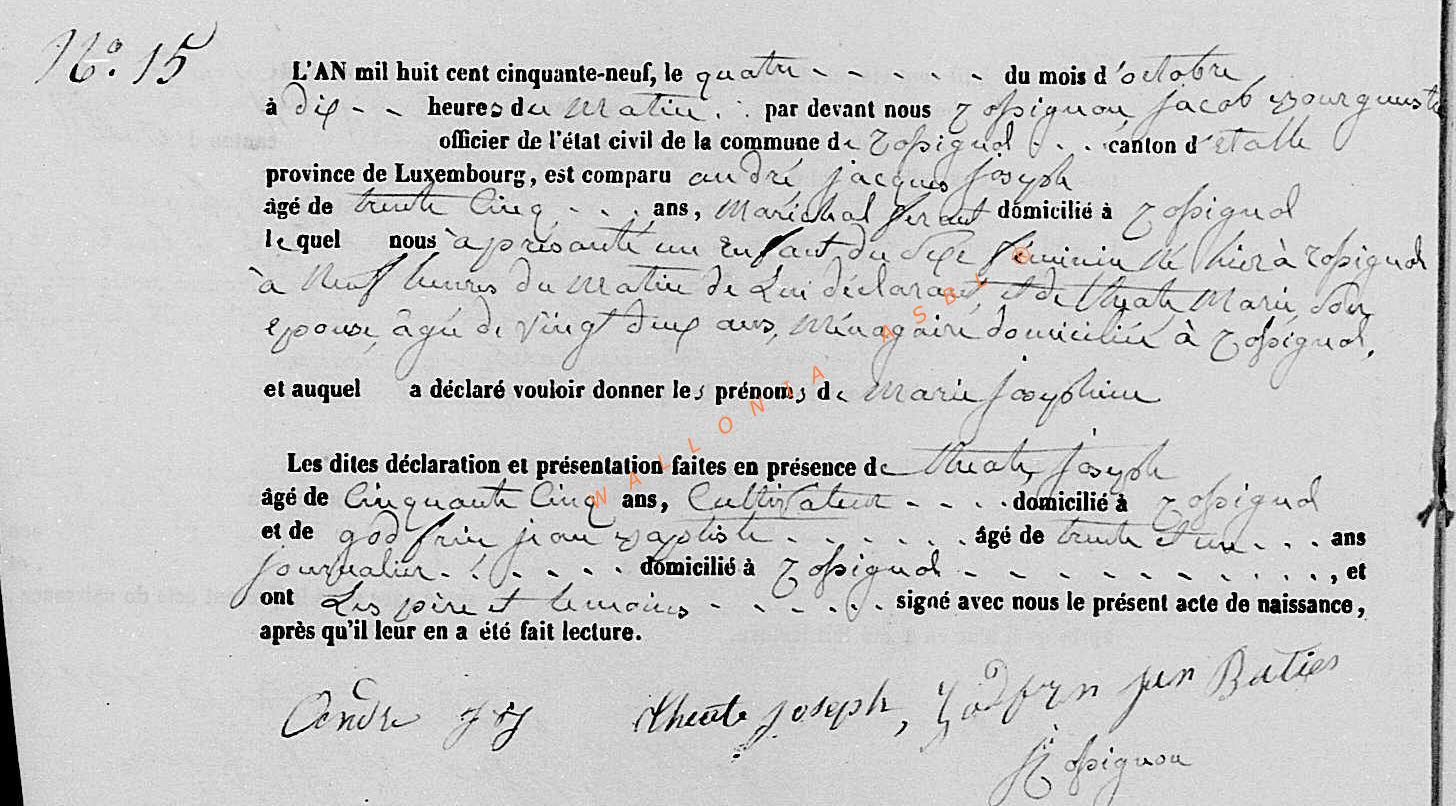 No. 15
L'AN mil huit cent cinquante-neuf, le quatre - - - - - du mois d'octobre
à dix - - heures du matin. par devant nous Rossignon, jacob Bourgumestre
officier de l'état civil de la commune de Rossignol . . . canton d'étalle
province de Luxembourg, est comparu andré, jacques joseph
âgé de trente Cinq . . . ans, Maréchal ferant domicilié à Rossignol
lequel nous a présanté un Enfant du Sexe féminin né hier à Rossignol
à Neuf heures du Matin de Lui déclarant, et de theate Marie, son
epouse, âgée de Vingt deux ans, Ménagaire domiciliée à Rossignol,
et auquel a déclaré vouloir donner les prénoms de Marie josephine
Les dites déclaration et présentation faites en présence de theate, joseph
âgé de Cinquante Cinq ans, Cultivateur - - - . domicilié à Rossignol
et de godfrin jean Baptiste . . . . . . . âgé de trente et un . . . ans
journalier . . . . . . domicilié à Rossignol - - - - - - - - - . . . , et
ont Les père et temoins - - - - . . signé avec nous le présent acte de naissance,
après qu'il leur en a été fait lecture.
Andre jj theate joseph, godfrn jan Baties
Rossignon
WALLONIA ASBL ©